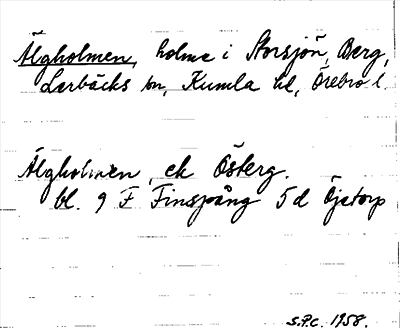 Älgholmen, holme i Storsjön, Berg,
Lerbäcks sn, Kumla hd, Örebro l.
Älgholmen, ek Österg.
bl. 9 F Finspång 5d Öjetorp
S.P.C. 1958.